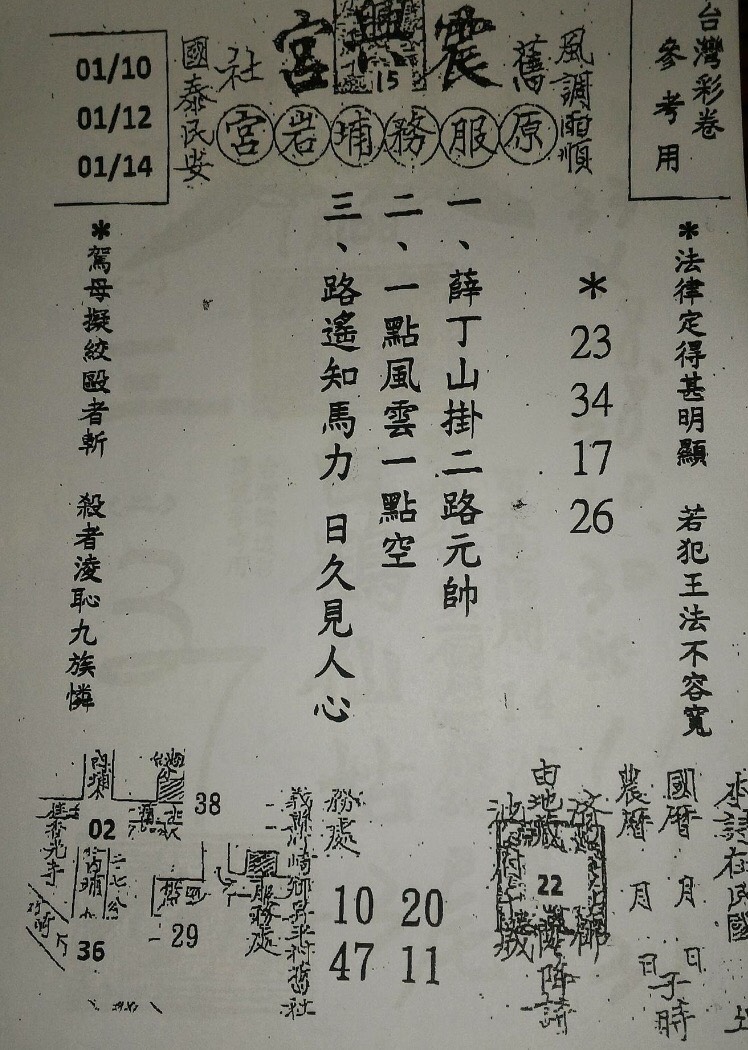 台灣彩卷
參考用
風調雨順
舊震興宮社
15
國泰民安
原服務埔岩宮
01/10
01/12
01/14
*法律定得甚明顯 若犯王法不容寬
*
23
34
17
26
一、薛丁山掛二路元帥
二、一點風雲一點空
三、路遙知馬力 日久見人心
*駕母擬絞毆者斬 殺者淩恥九族憐
國曆 月 日
農曆 月 日
子時
由地藏
22
降詩
務處
10 20
47 11
38
02
29
36
服務處